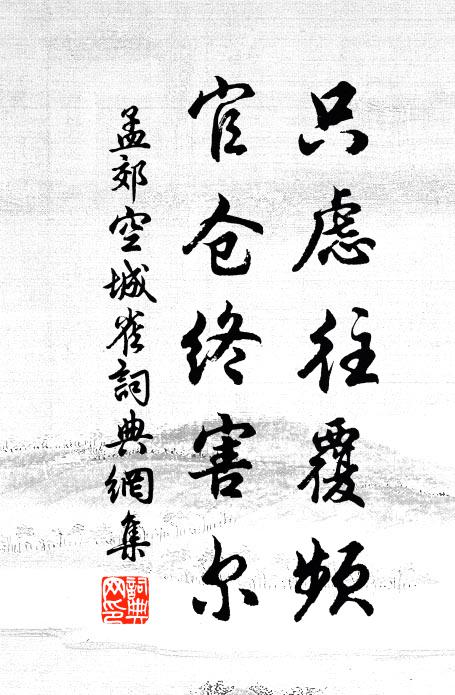 只虑往覆频
官仓终害尔
孟郊空城雀詞典網集
詞典网印